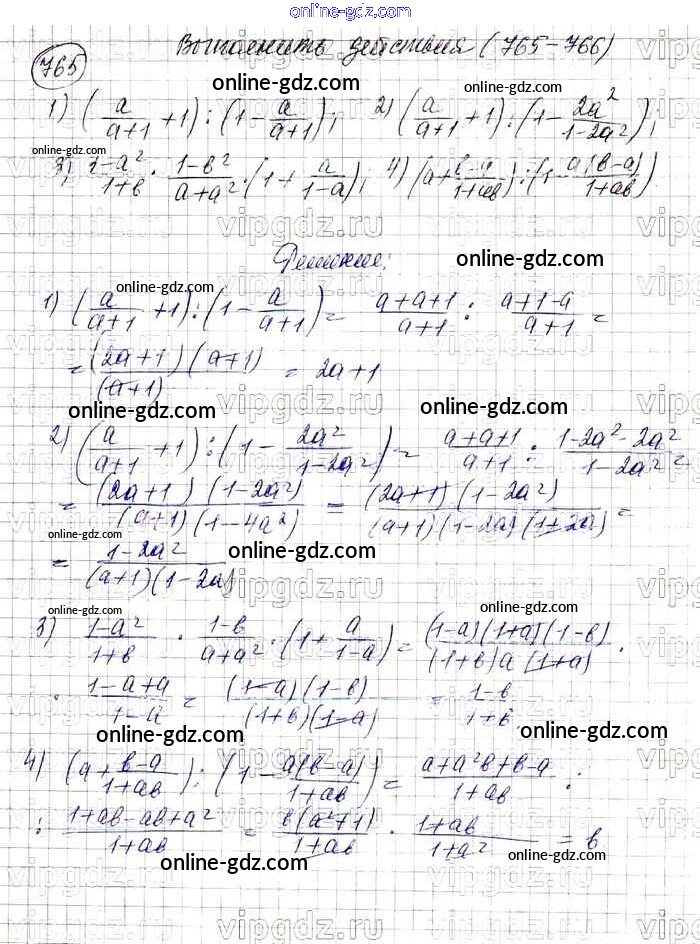 online-gdz.com
Выполнить действия (765-766)
765
online-gdz.com
1) (a/(a+1) + 1) : (1 - a/(a+1)); 2) (a/(a+1) + 1) : (1 - 2a²/(1-2a²));
online-gdz.com
3) (1-a²)/(1+b) · (1-b²)/(a+a²) · (1 + a/(1-a)); 4) (a + (b-a)/(1+ab)) : (1 - a(b-a)/(1+ab))
vipgdz.ru
Решение:
online-gdz.com
online-gdz.com
1) (a/(a+1) + 1) : (1 - a/(a+1)) = (a+a+1)/(a+1) : (a+1-a)/(a+1) =
= (2a+1)(a+1)/(a+1) = 2a+1
online-gdz.com online-gdz.com
2) (a/(a+1) + 1) : (1 - 2a²/(1-2a²)) = (a+a+1)/(a+1) : (1-2a²-2a²)/(1-2a²) =
= (2a+1)(1-2a²)/((a+1)(1-4a²)) = (2a+1)(1-2a²)/((a+1)(1-2a)(1+2a)) =
online-gdz.com
= (1-2a²)/((a+1)(1-2a)) online-gdz.com
online-gdz.com online-gdz.com
3) (1-a²)/(1+b) · (1-b)/(a+a²) · (1 + a/(1-a)) = (1-a)(1+a)(1-b)/((1+b)a(1+a)) ·
online-gdz.com
· (1-a+a)/(1-a) = (1-a)(1-b)/((1+b)(1-a)) = (1-b)/(1+b)
online-gdz.com online-gdz.com
4) (a + (b-a)/(1+ab)) : (1 - a(b-a)/(1+ab)) = (a+a²b+b-a)/(1+ab) :
online-gdz.com
: (1+ab-ab+a²)/(1+ab) = b(a²+1)/(1+ab) · (1+ab)/(1+a²) = b
online-gdz.com online-gdz.com
vipgdz.ru